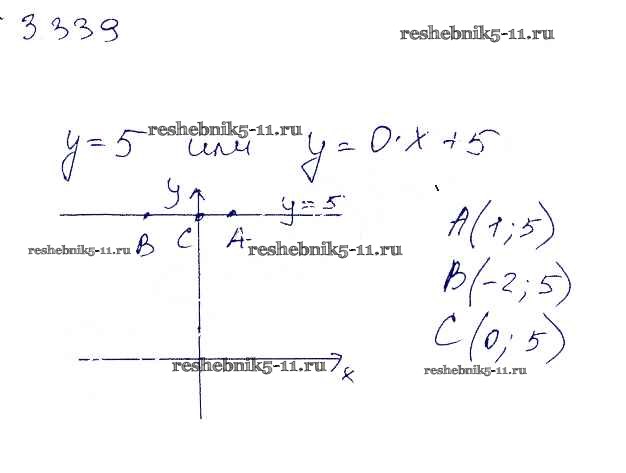 3 339
reshebnik5-11.ru
reshebnik5-11.ru
y = 5 или y = 0·x + 5
y
y = 5
B C A
A(1; 5)
reshebnik5-11.ru
reshebnik5-11.ru
B(-2; 5)
C(0; 5)
reshebnik5-11.ru
x
reshebnik5-11.ru